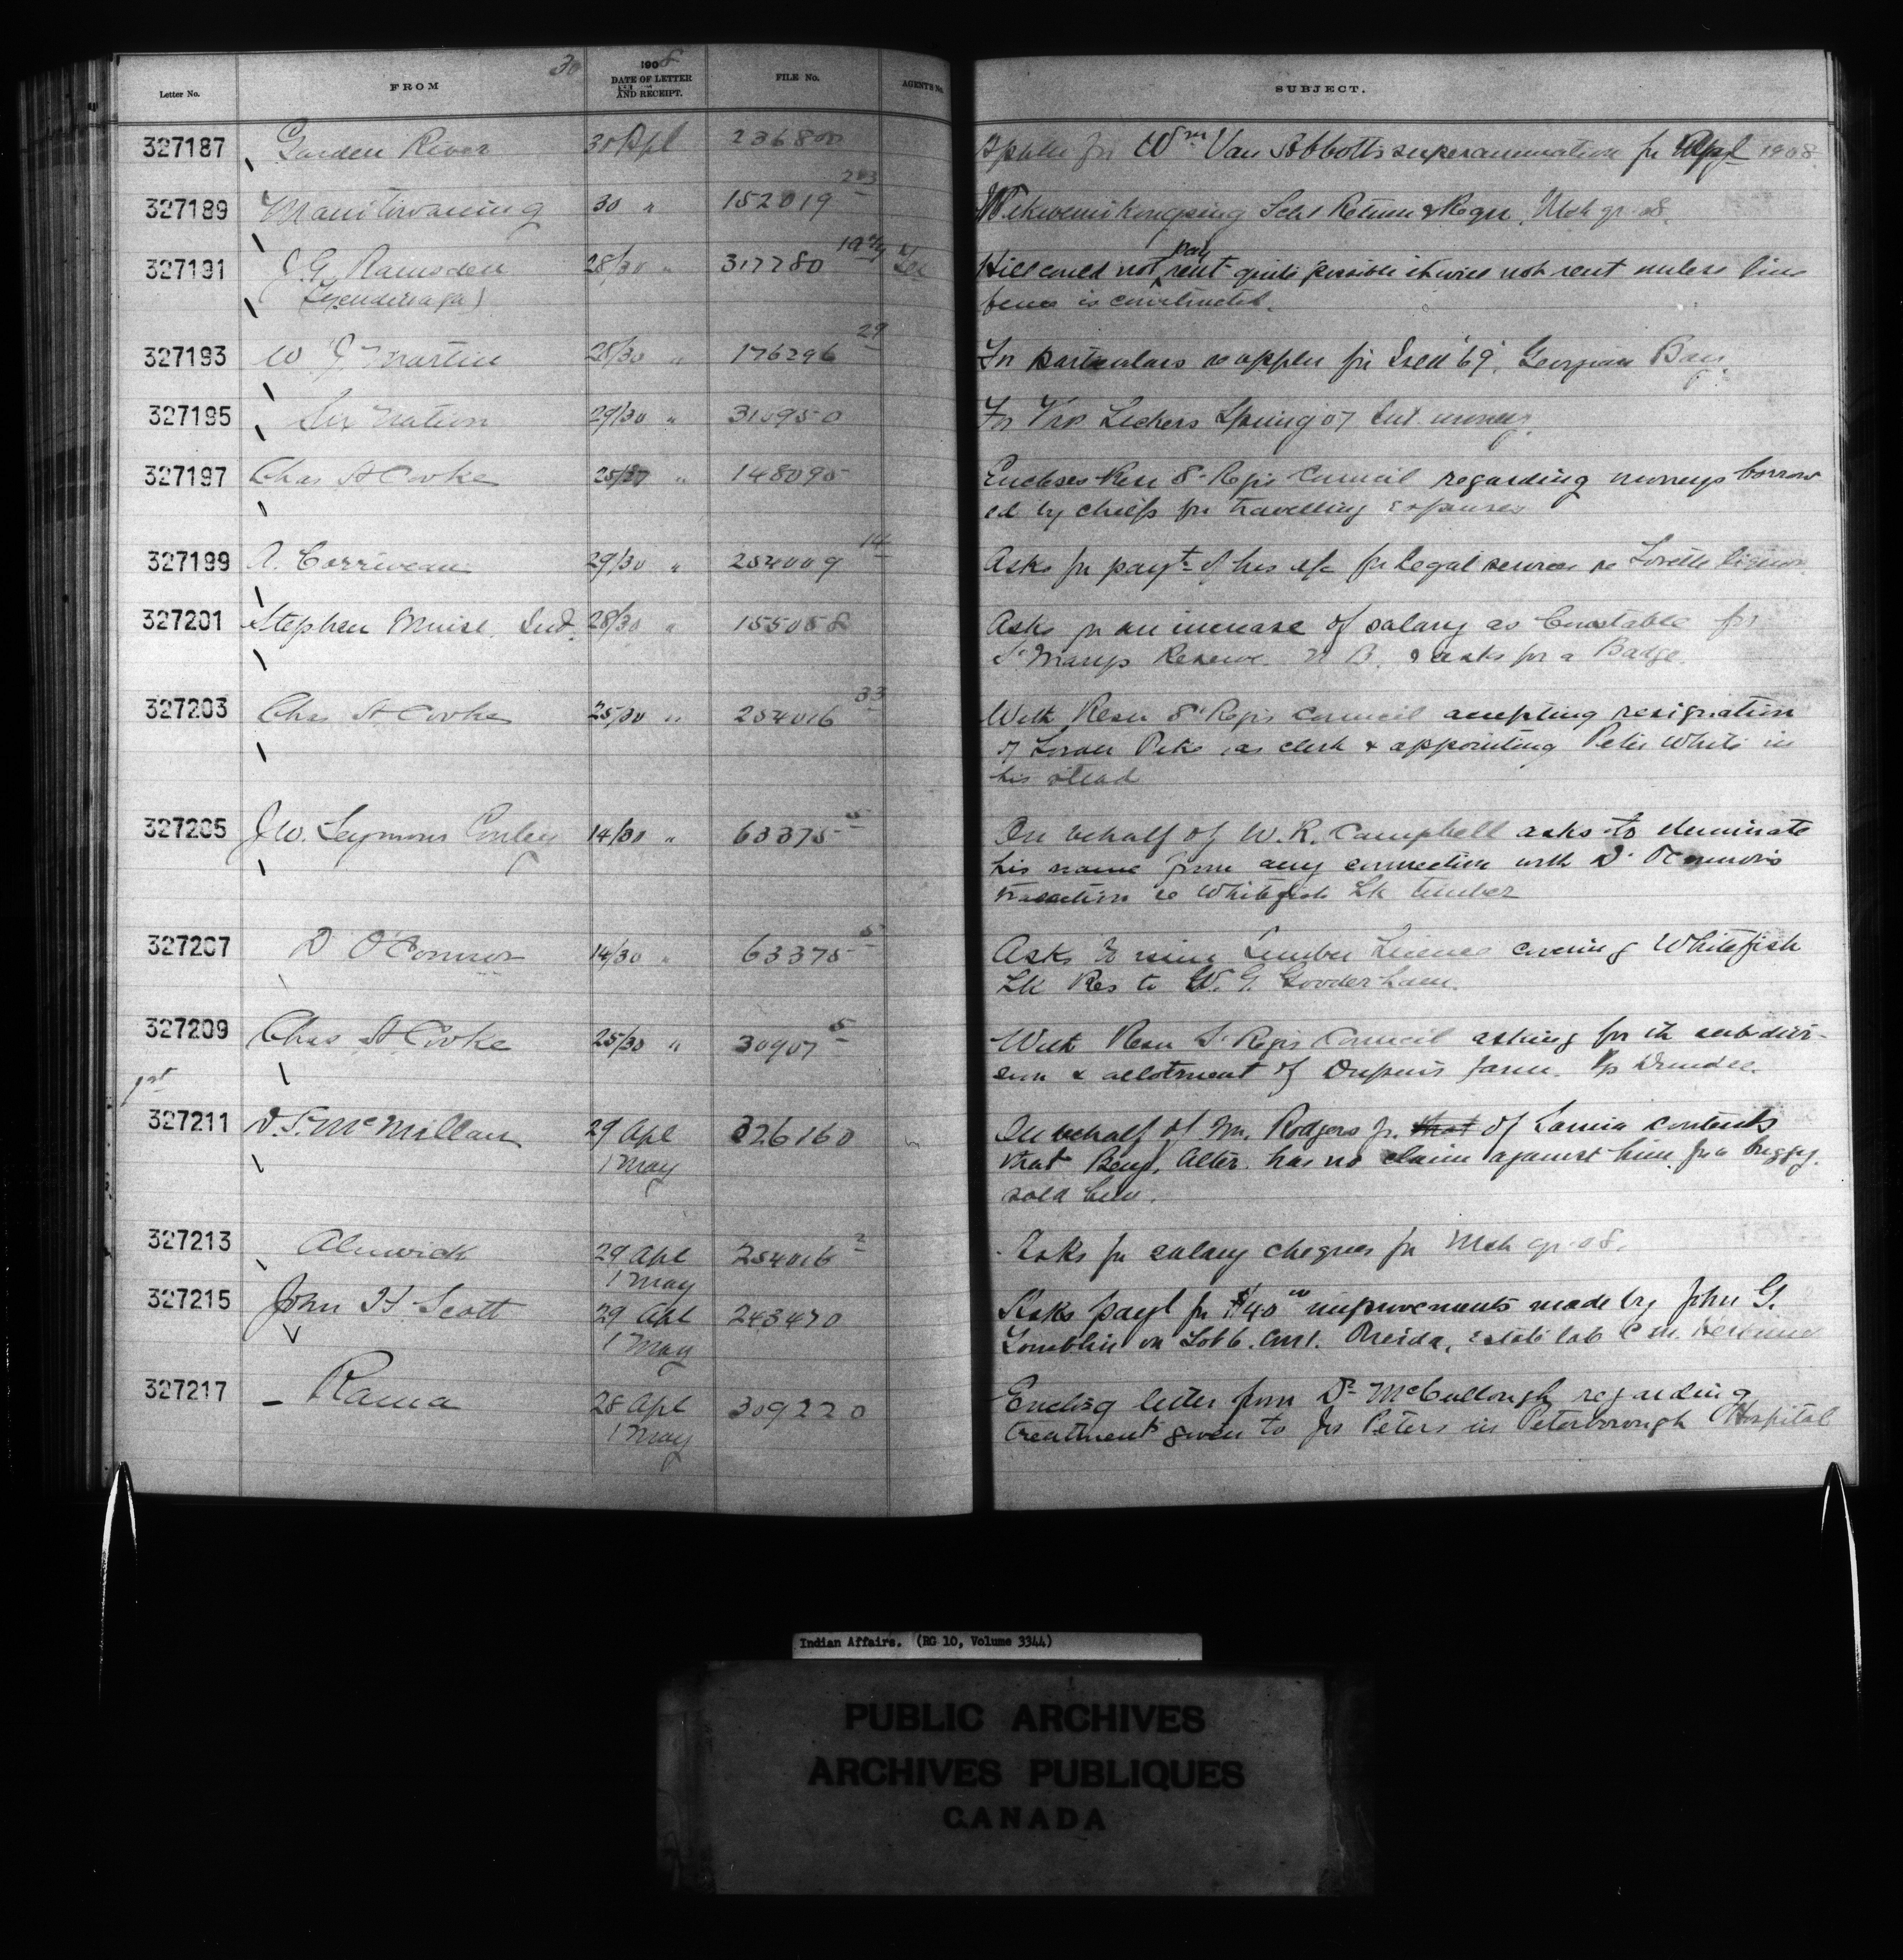 30
1908
Letter No. FROM DATE OF LETTER AND RECEIPT. FILE No. AGENT'S No. SUBJECT.
327187 Garden River 30 Apl 236800 Appln for Wm Van Abbotts superannuation for Apl 1908
327189 Manitowaning 30 " 152019 283 Wikwemikongsing Schl Return & Regr. Mch qr 08.
327191 J. G. Ramsden 28/30 " 317780 Hill could not pay rent quite possible it will not rent unless line
(Tyendinaga) fence is constructed.
327193 W J Martin 28/30 " 176296 29 For particulars re appln for Isld '69', Georgian Bay.
327195 Six Nation 29/30 " 310950 For Lickers Spring 07 Int. money.
327197 Chas A Cooke 25/27 " 148095 Encloses Resn St Regis Council regarding moneys borrow
ed by chiefs for travelling expenses
327199 A. Corriveau 29/30 " 254009 14 Asks for payt of his a/c for Legal services re Lorette liquor
327201 Stephen Muise. Ind. 28/30 " 155058 Asks for an increase of salary as Constable for
St Marys Reserve. N B. & asks for a Badge.
327203 Chas A Cooke 25/30 " 254016 33 With Resn St Regis Council accepting resignation
of Loran Pike as clerk & appointing Peter White in
his stead
327205 J. W. Seymour Corley 14/30 " 63375 5 On behalf of W. R. Campbell asks to eliminate
his name from any connection with D. O'Connors
transaction re Whitefish Lk timber
327207 D O'Connor 14/30 " 63375 5 Asks to issue Timber License covering Whitefish
Lk Res to W. G. Gooderham.
327209 Chas A Cooke 25/30 " 30907 5 With Resn St Regis Council asking for the sub-divi-
sion & allotment of Dupuis farm. Tp Dundee.
1st
327211 D. S. McMillan 29 Apl 326160 On behalf of Wm. Rodgers jr. that of Sarnia contends
1 May that Benj. Alter. has no claim against him for a buggy
sold him.
327213 Alnwick 29 Apl 254016 2 Asks for salary cheques for Mch qr 08.
1 May
327215 John H Scott 29 Apl 243470 Asks payt for $40 00 improvements made by John G.
1 May Tomblin on Lot 6. Con 1. Oneida, estate late
327217 Rama 28 Apl 309220 Enclosg letter from Dr McCullough regarding
1 May treatment given to Jos Peters in Peterborough Hospital
Indian Affairs. (RG 10, Volume 3344)
PUBLIC ARCHIVES
ARCHIVES PUBLIQUES
CANADA